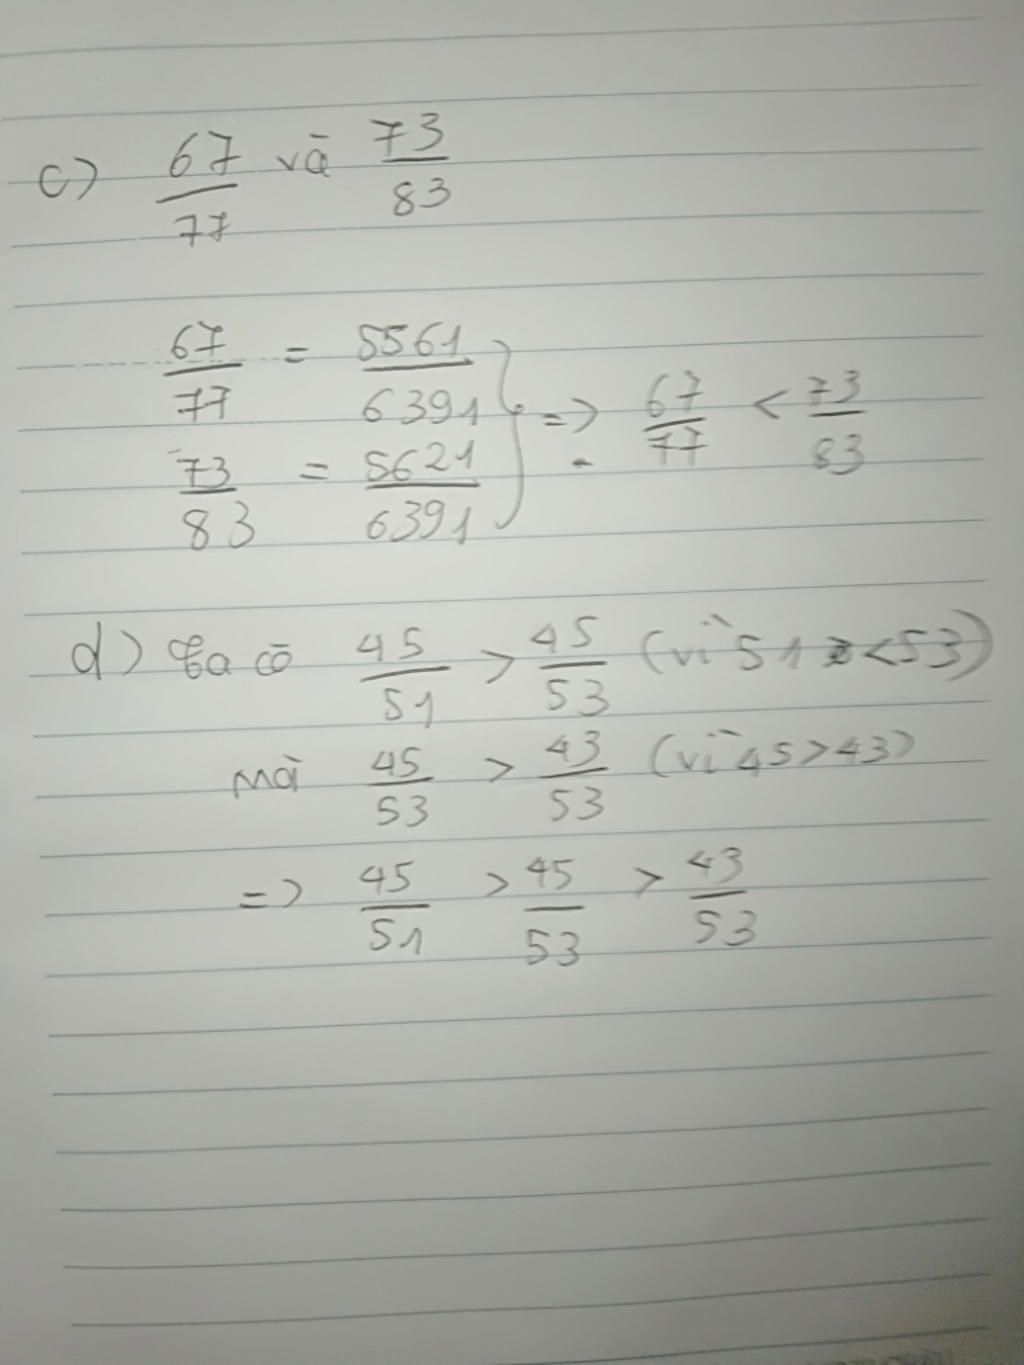 c) 67/77 và 73/83
67/77 = 5561/6391
73/83 = 5621/6391
=> 67/77 < 73/83
d) Ta có 45/51 > 45/53 (vì 51 < 53)
Mà 45/53 > 43/53 (vì 45 > 43)
=> 45/51 > 45/53 > 43/53